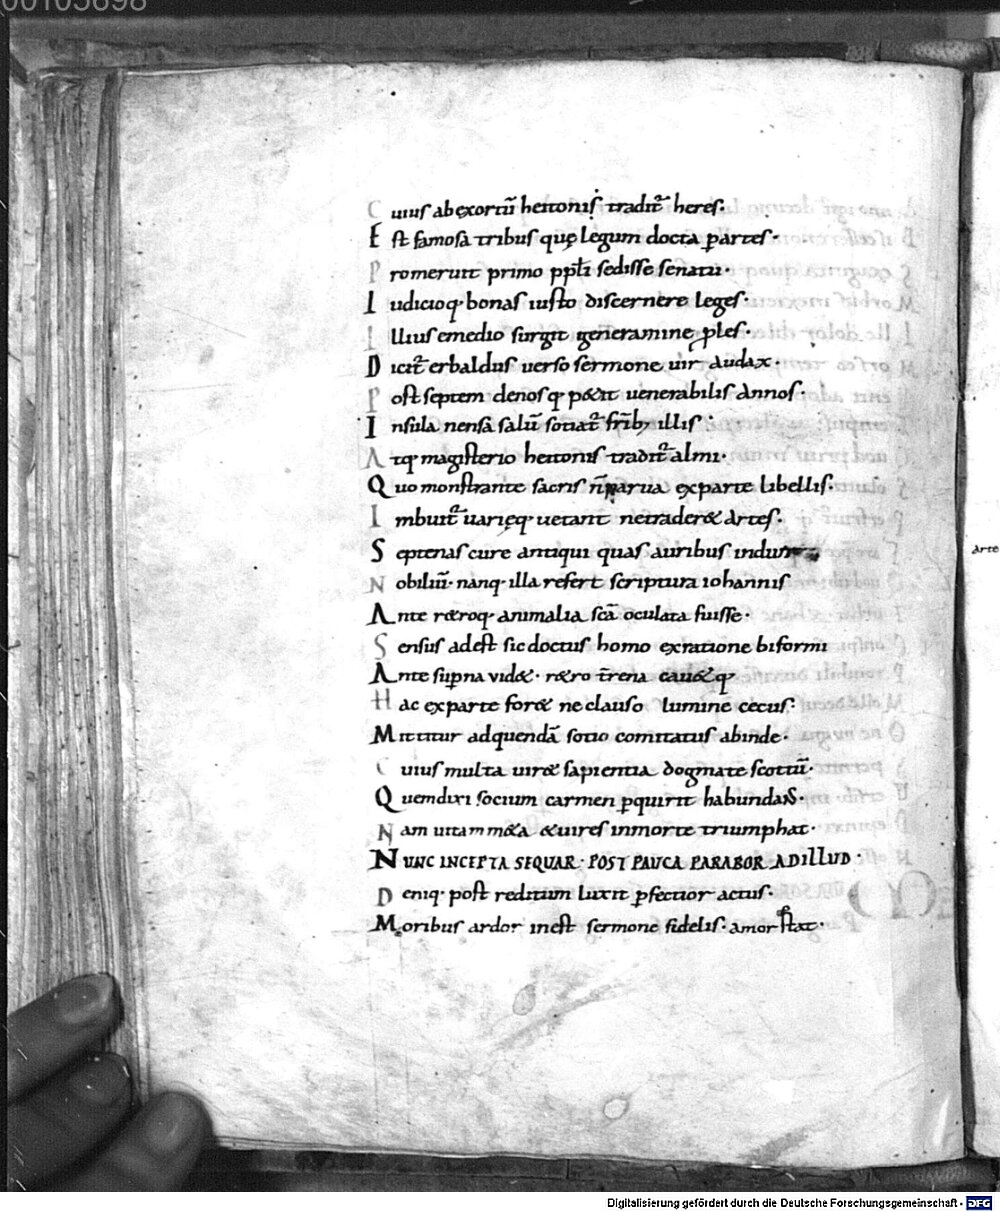 00105698
Cuius ab exortū heitonis tradit᷑ heres·
Est famosa tribus quę legum docta partes·
Promerunt primo ppłi sedisse senatu·
Iudicioq· bonas iusto discernere leges·
Illius emedio surgit generamine ples·
Dicit᷑ erbaldus uerso sermone uir audax·
Post septem denosq· p&iit uenerabilis annos·
Insula nensā salū sotiat᷑ frīb; illis·
Atq· magisterio heitonis tradit᷑ almi·
Quo monstrante sacris n̄ parua exparte libellis·
Imbuit᷑ uarięq· uetant netrader& artes·
Septenas cure antiqui quas auribus
Nobiliū· nanq· illa refert scriptura iohannis
Ante r&roq· animalia scā oculata fuisse·
Sensus adest sic doctus homo exratione biformi
Ante suꝑna vid&· r&ro t̄rena cau&q·
Hac exparte for& ne clauso lumine cecus·
Mittitur adquendā sotio comitatus abinde·
Cuius multa uir& sapientia dogmate scottū·
Quem dixi socium carmen ꝑquirit habundans·
Nam uitam m&a &uires inmorte triumphat·
NUNC INCEPTA SEQUAR· POST PAUCA PARABOR ADILLUD·
Deniq· post reditum luxit ꝑfectior actus·
Moribus ardor inest sermone fidelis· amor stat·
arte
Digitalisierung gefördert durch die Deutsche Forschungsgemeinschaft - DFG